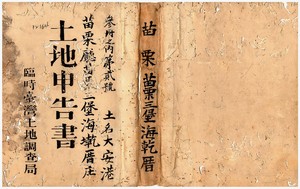 苗栗 苗栗三堡海墘厝
參冊之內第貳號
土名大安港
苗栗廳苗栗三堡海墘厝庄
土地申告書
臨時臺灣土地調查局